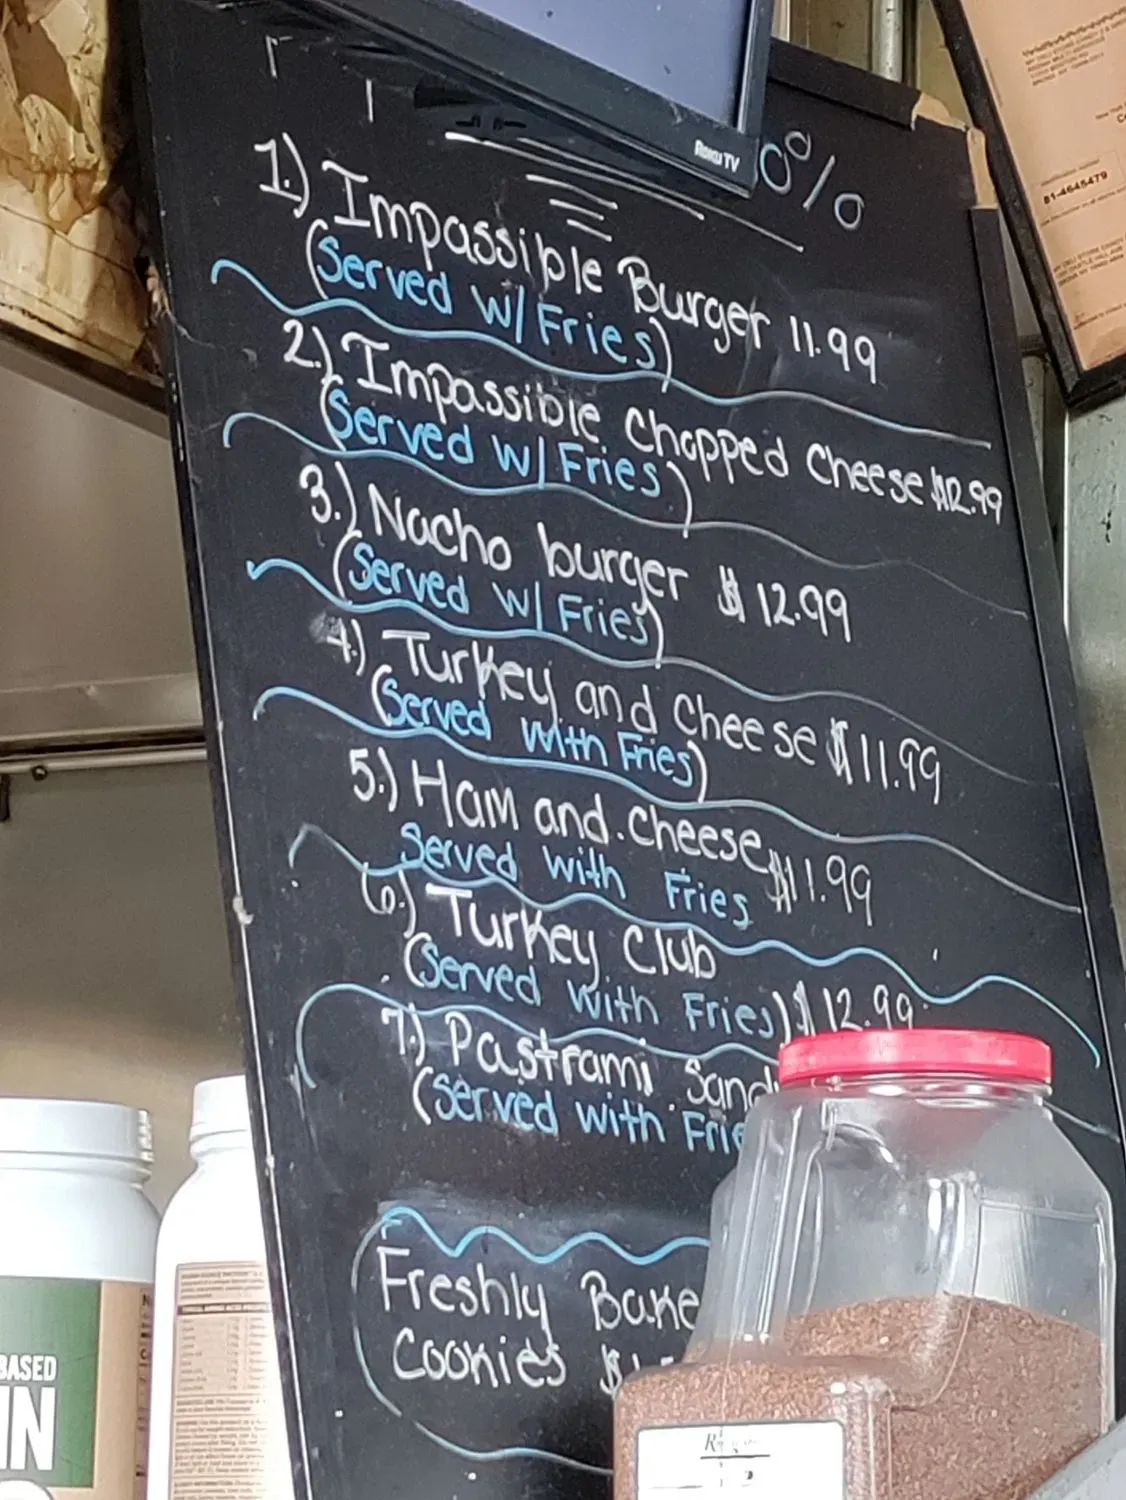 Roku TV
0%
1.) Impassible Burger 11.99
(Served W/ Fries)
2.) Impassible Chopped Cheese $12.99
(Served W/ Fries)
3.) Nacho burger $12.99
(Served W/ Fries)
4.) Turkey and Cheese $11.99
(Served with Fries)
5.) Ham and Cheese $11.99
Served with Fries
6.) Turkey Club
(Served with Fries) $12.99
7.) Pastrami Sand
(Served with Frie
Freshly Bake
Cookies $1.
81-4645479
BASED
IN